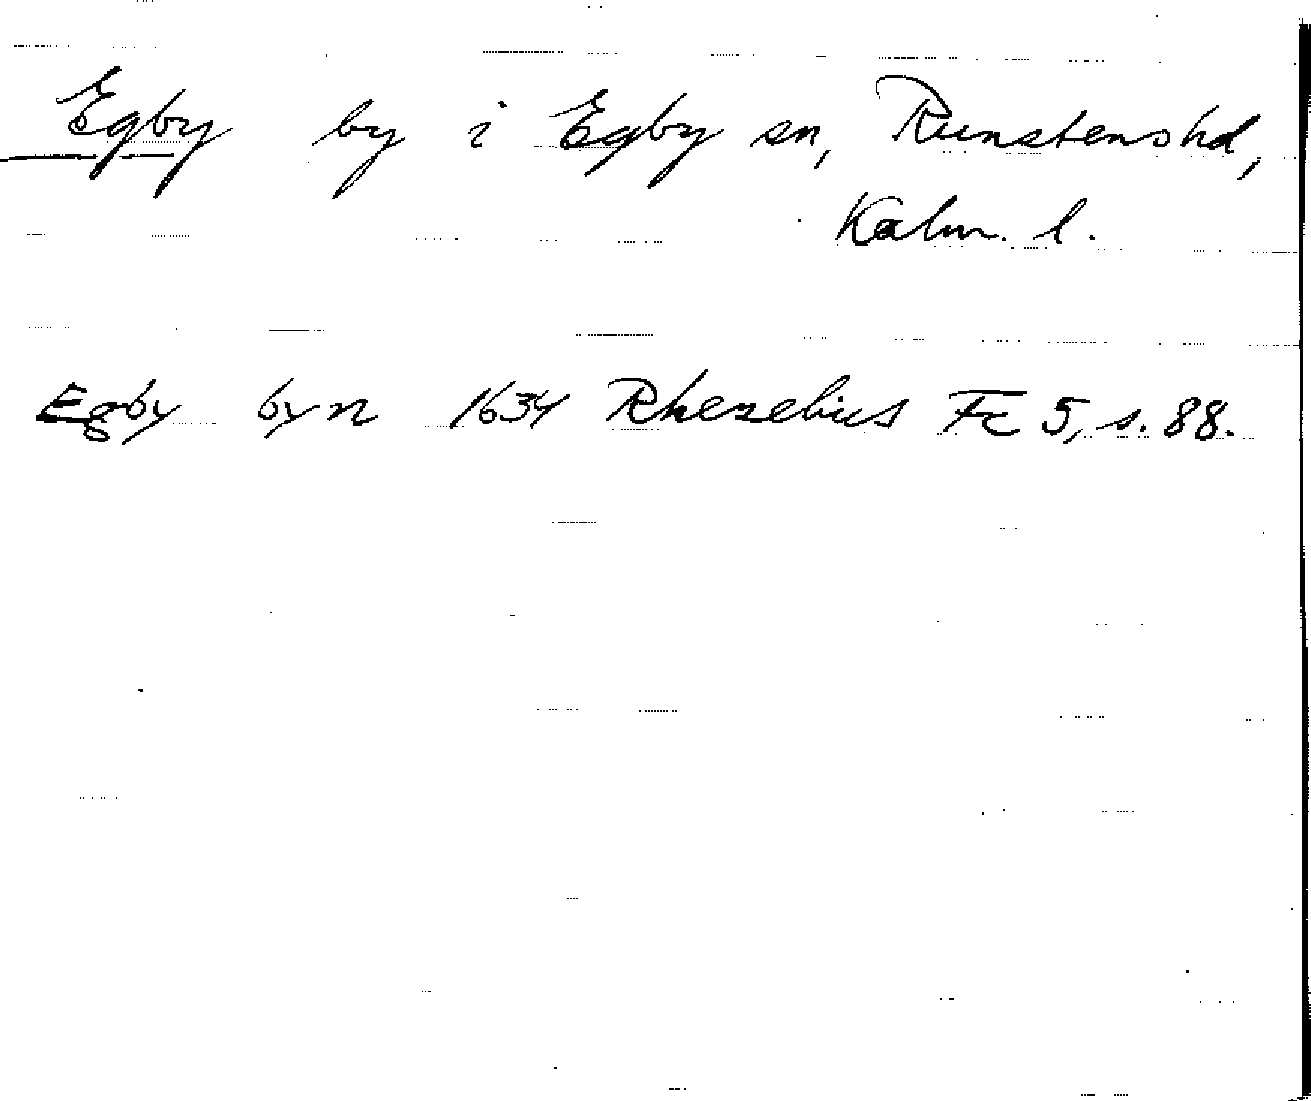 Egby by i Egby sn, Runstens hd,
Kalm. l.
Egby byn 1634 Rhezelius Fc 5, s. 88.